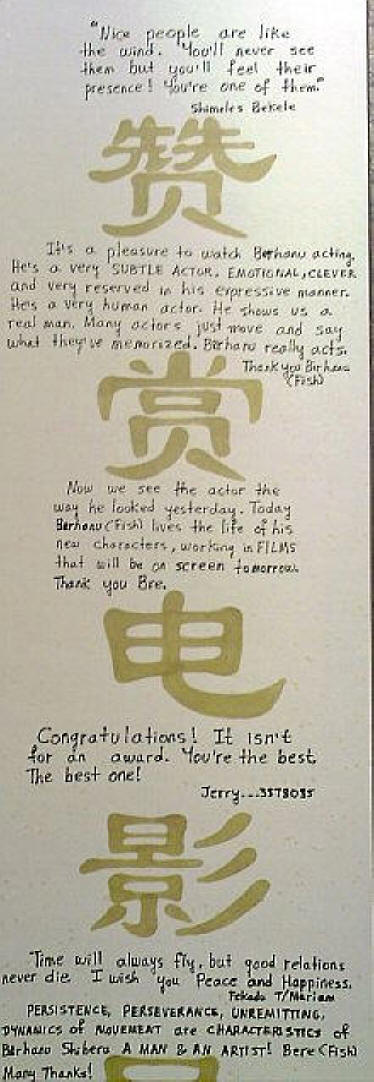 "Nice people are like
the wind. You'll never see
them but you'll feel their
presence! You're one of them."
Shimeles Bekele
赞
It's a pleasure to watch Berhanu acting.
He's a very SUBTLE ACTOR, EMOTIONAL, CLEVER
and very reserved in his expressive manner.
He's a very human actor. He shows us a
real man. Many actors just move and say
what they've memorized. Birhanu really acts.
Thank you Birhanu
(Fish)
赏
Now we see the actor the
way he looked yesterday. Today
Berhanu (Fish) lives the life of his
new characters, working in FILMS
that will be on screen tomorrow.
Thank you Bre.
电
Congratulations! It isn't
for an award. You're the best.
The best one!
Jerry...3378035
影
"Time will always fly, but good relations
never die I wish you Peace and Happiness.
Fekadu T/Mariam
PERSISTENCE, PERSEVERANCE, UNREMITTING,
DYNAMICS of MOVEMENT are CHARACTERISTICS of
Birhanu Shiberu A MAN & AN ARTIST! Bere (Fish)
Many Thanks!